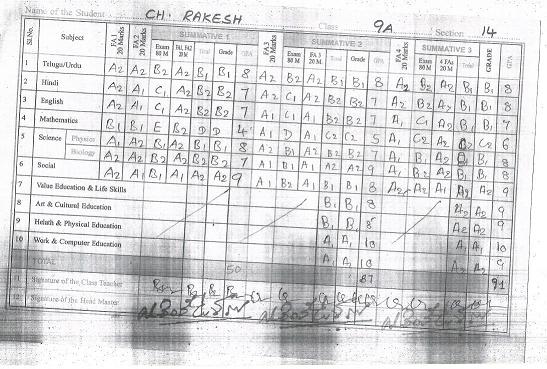 Name of the Student CH. RAKESH Class 9A Section 14
Sl.No. Subject FA1 20 Marks FA2 20 Marks SUMMATIVE 1 FA3 20 Marks SUMMATIVE 2 FA4 20 Marks SUMMATIVE 3 GRADE GPA
Exam 80 M FA1, FA2 20 M Total Grade GPA Exam 80 M FA 3 20 M Total Grade GPA Exam 80 M 4 FAs 20 M Total
1 Telugu/Urdu A2 A2 B2 A2 B1 B1 8 A2 B2 A2 B1 B1 8 A2 B2 A2 B1 B1 8
2 Hindi A2 A1 C1 A2 B2 B2 7 A2 C1 A1 B2 B2 7 A2 B2 A2 B1 B1 8
3 English A2 A1 C1 A2 B2 B2 7 A1 C1 A1 B2 B2 7 A1 C1 A2 B2 7
4 Mathematics B1 B1 E B2 D D 4 A1 D A1 C2 C2 5 A1 C2 A2 C2 6
5 Science Physics A1 A2 B1 A2 B1 B1 8 A2 B1 A2 B2 B2 7 A1 B1 A2 B1 8
Biology A2 A2 B2 A2 B2 B2 7 A1 B1 A1 A2 A2 9 A1 B2 A2 B1 B1 8
6 Social A2 A1 B1 A1 A2 A2 9 A1 B2 A1 B1 B1 8 A2 A2 A1 A2 A2 9
7 Value Education & Life Skills B1 B1 8 A2 A2 9
8 Art & Cultural Education B1 B1 8 A2 A2 9
9 Helath & Physical Education A1 A1 10 A1 A1 10
10 Work & Computer Education A1 A1 10 A2 A2 9
TOTAL 50 87 91
11 Signature of the Class Teacher
12 Signature of the Head Master